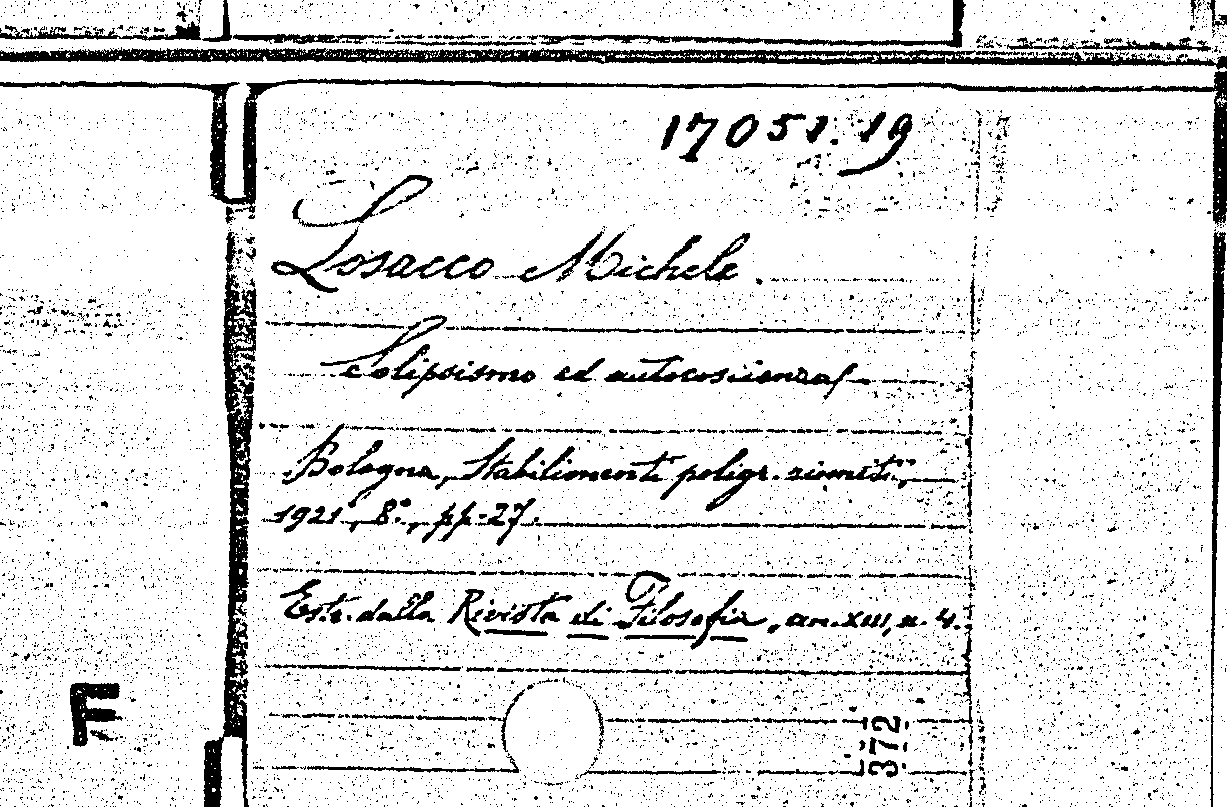 17051.19
Losacco Michele
Solipsismo ed autocoscienza
Bologna, Stabilimenti poligr. riuniti,
1921, 8°, pp. 27.
Estr. dalla Rivista di Filosofia, an. XIII, n. 4.
F
372